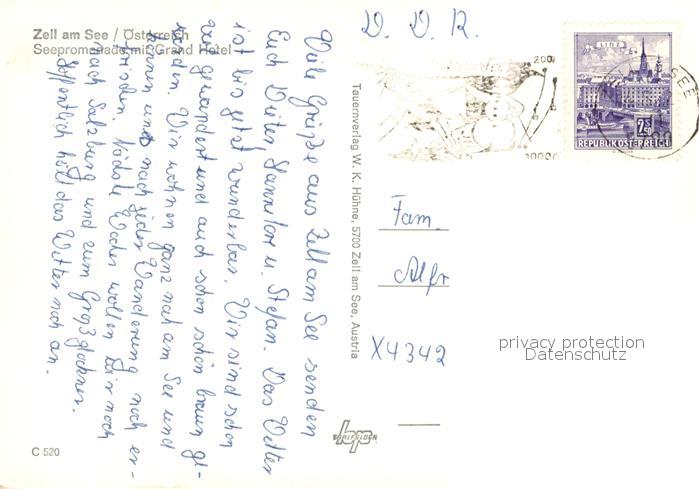 Zell am See / Österreich
Seepromenade mit Grand Hotel
Viele Grüße aus Zell am See senden
Euch Dieter, Hannelore u. Stefan. Das Wetter
ist bis jetzt wunderbar. Wir sind schon
viel gewandert und auch schon schön braun ge-
worden. Wir wohnen ganz nah am See und
können uns nach jeder Wanderung noch er-
frischen. Nächste Woche wollen wir noch
nach Salzburg und zum Großglockner.
Hoffentlich hält das Wetter noch an.
C 520
Tauernverlag W. K. Hühne, 5700 Zell am See, Austria
D. D. R.
200
3000
LINZ
2,50
REPUBLIK ÖSTERREICH
SEE
Fam.
Alfr
X4342
privacy protection
Datenschutz
SAALFELDEN